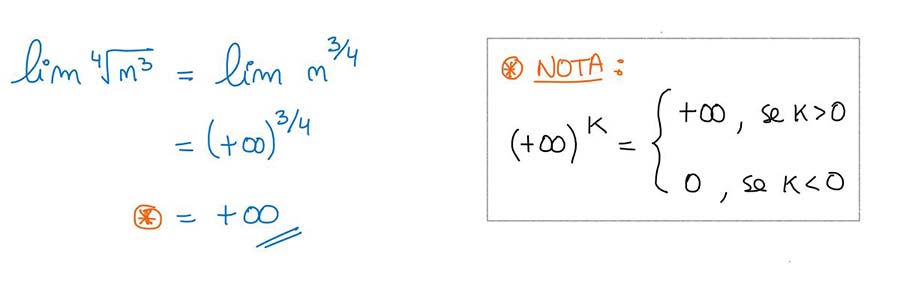 lim ⁴√n³ = lim n^3/4
= (+∞)^3/4
⊛ = +∞
⊛ NOTA :
(+∞)^K = { +∞ , se K>0
0 , se K<0